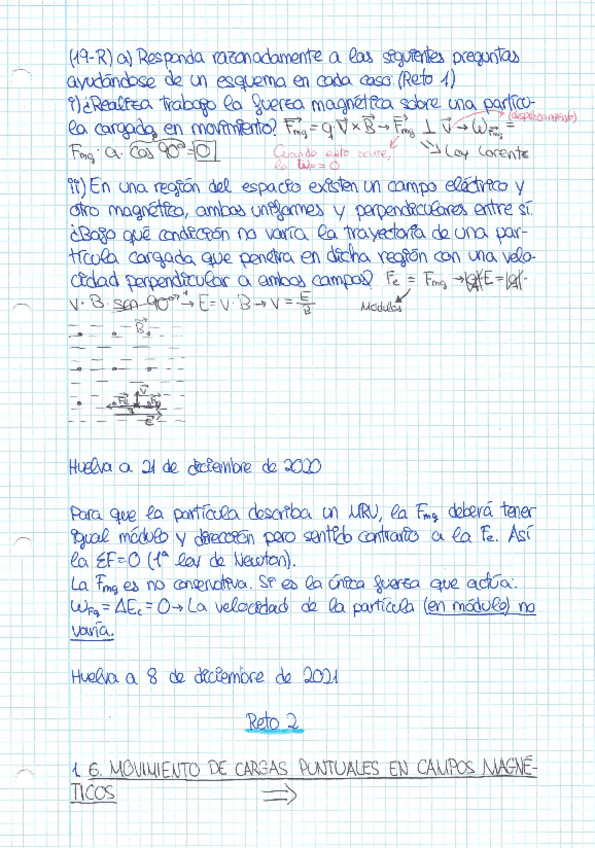 (19-R) a) Responda razonadamente a las siguientes preguntas
ayudándose de un esquema en cada caso. (Reto 1)
i) ¿Realiza trabajo la fuerza magnética sobre una partícu-
la cargada en movimiento? F⃗mg = q·V⃗×B⃗ → F⃗mg ⊥ V⃗ → WFmg =
(desplazamiento)
Fmg · a · cos 90º = 0
Cuando esto ocurre,
la W = 0
Ley Lorentz
ii) En una región del espacio existen un campo eléctrico y
otro magnético, ambos uniformes y perpendiculares entre sí.
¿Bajo qué condición no varía la trayectoria de una par-
tícula cargada que penetra en dicha región con una velo-
cidad perpendicular a ambos campos? Fe = Fmg → |q|·E = |q|·
V · B · sen 90º → E = V · B → V = E/B
Módulos
B⃗
V⃗
E⃗
Huelva a 21 de diciembre de 2020
Para que la partícula describa un MRU, la Fmg deberá tener
igual módulo y dirección pero sentido contrario a la Fe. Así
la ΣF=0 (1ª ley de Newton).
La Fmg es no conservativa. Si es la única fuerza que actúa:
WFg = ΔEc = 0 → La velocidad de la partícula (en módulo) no
varía.
Huelva a 8 de diciembre de 2021
Reto 2
1.6. MOVIMIENTO DE CARGAS PUNTUALES EN CAMPOS MAGNÉ-
TICOS ⇒